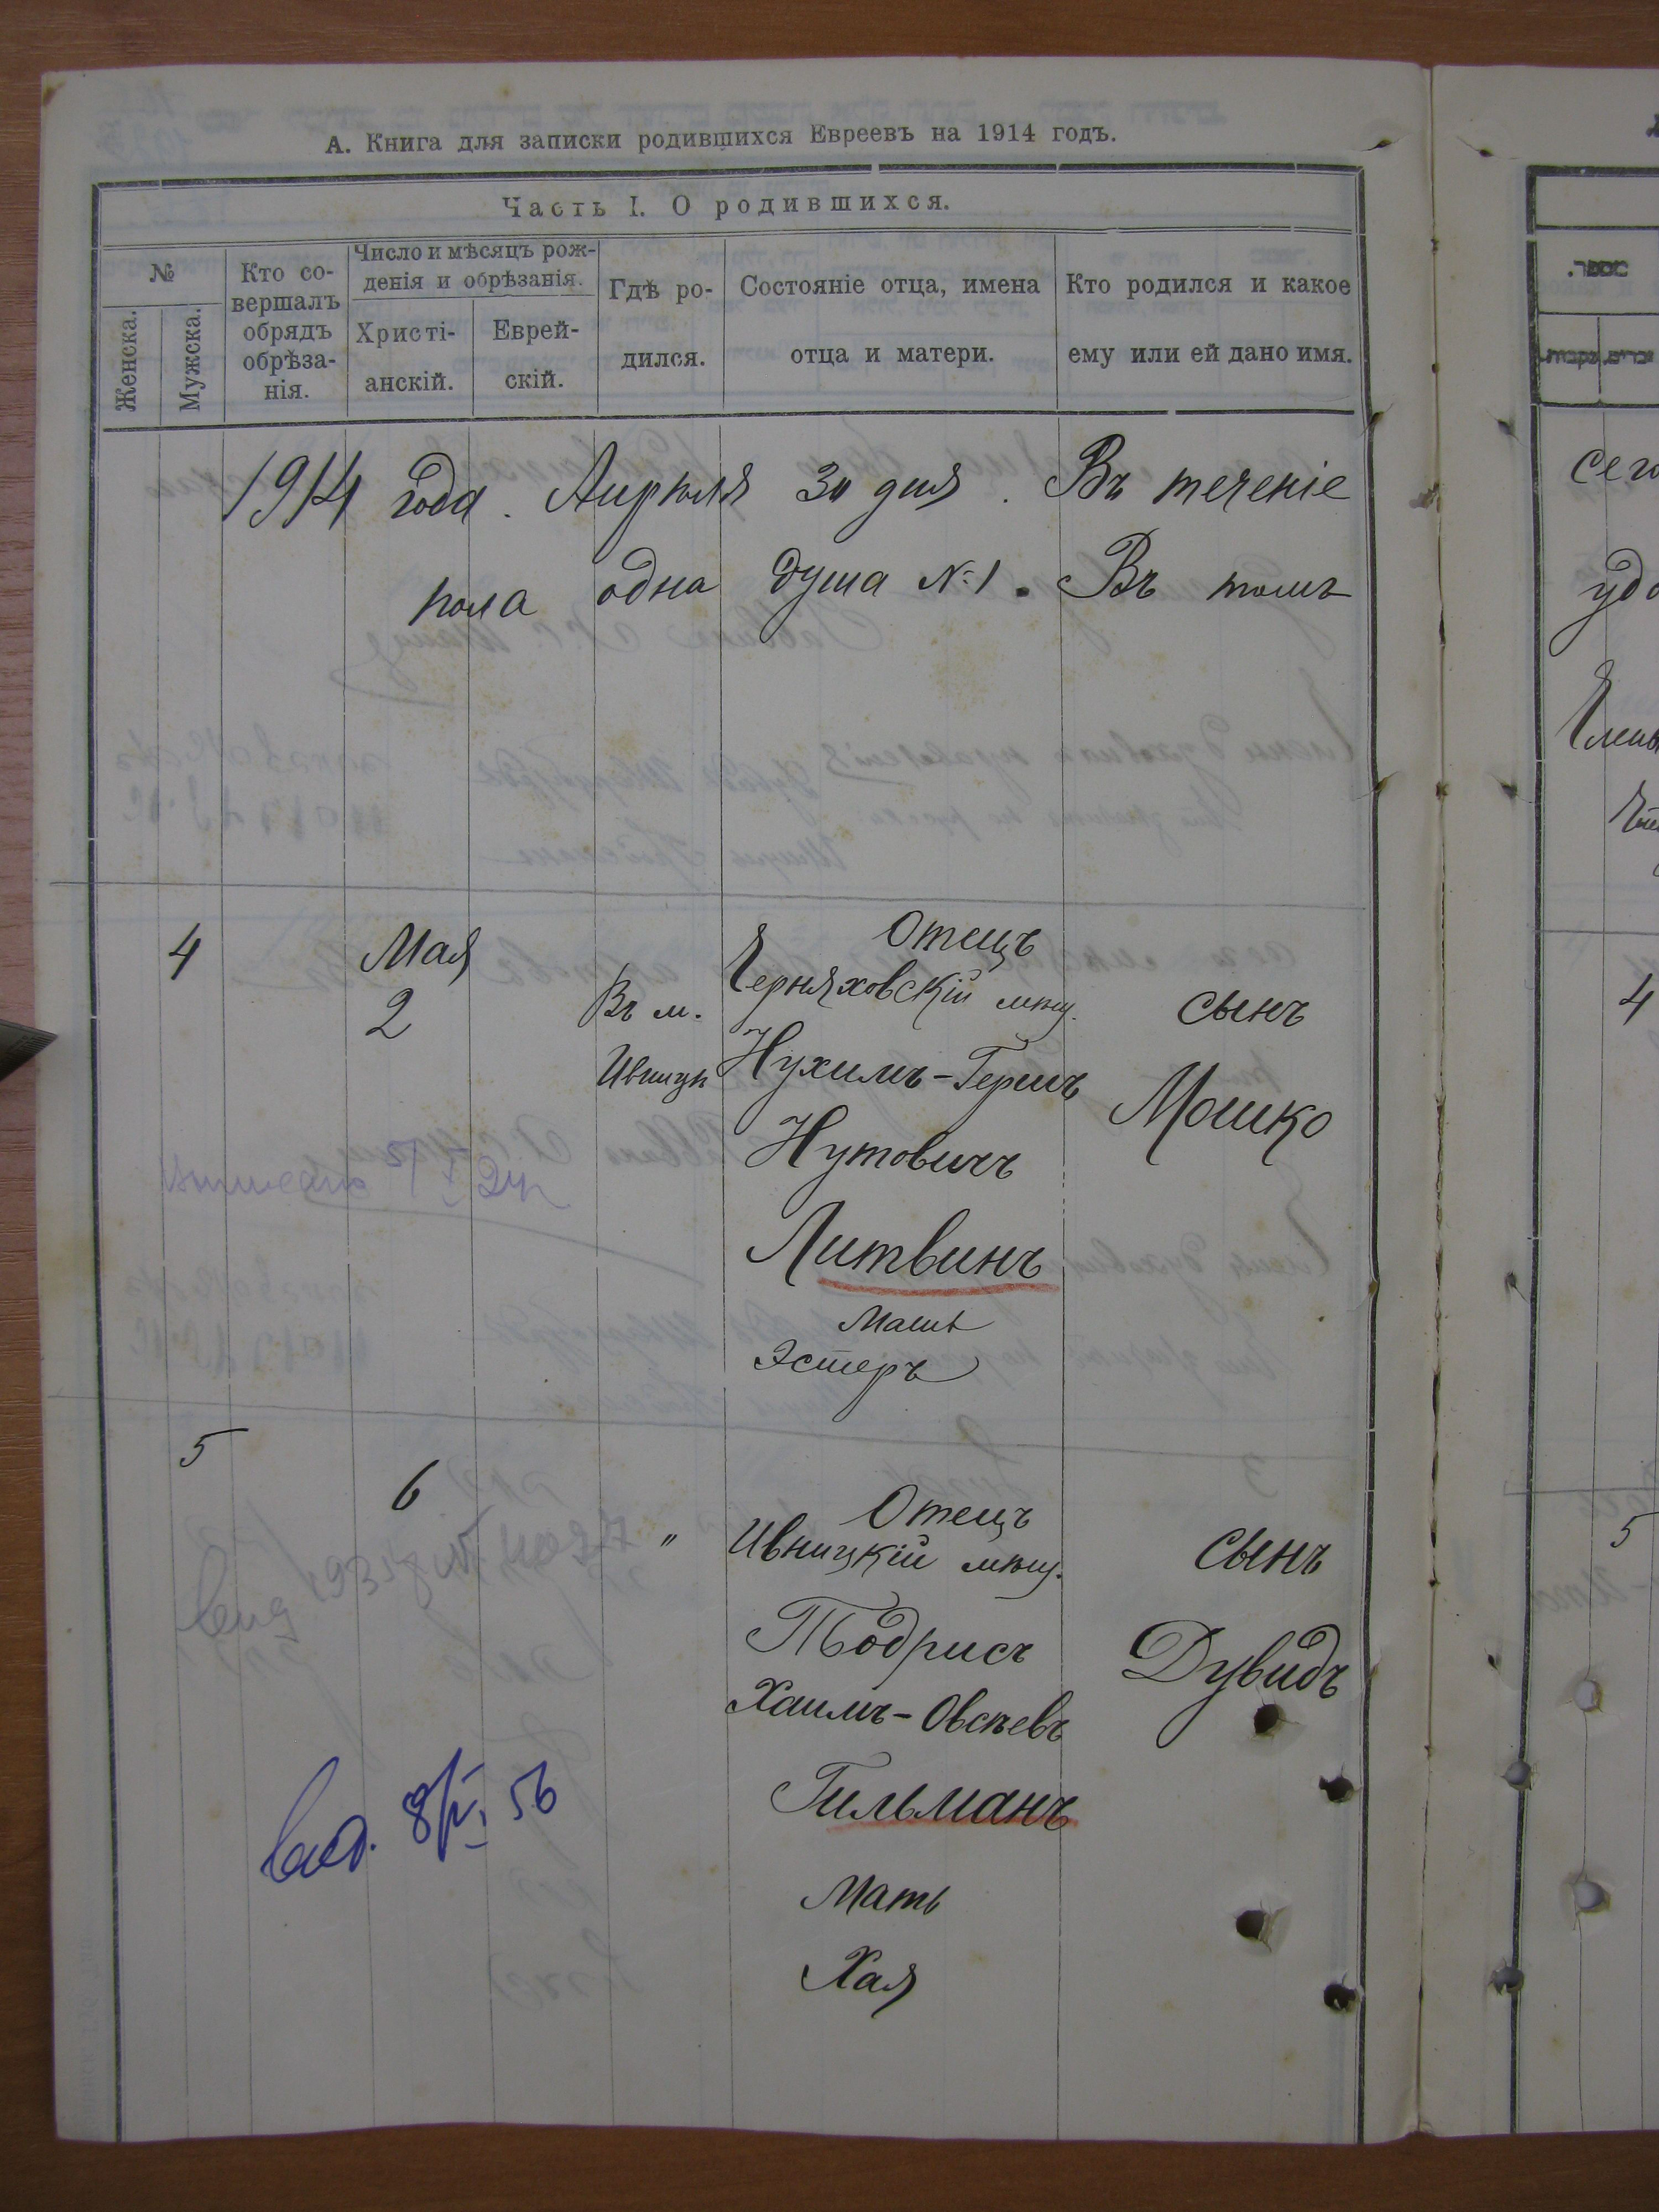 А. Книга для записки родившихся Евреевъ на 1914 годъ.
Часть I. О родившихся.
№
Женска.
Мужска.
Кто со-
вершалъ
обрядъ
обрѣза-
нія.
Число и мѣсяцъ рож-
денія и обрѣзанія.
Христі-
анскій.
Еврей-
скій.
Гдѣ ро-
дился.
Состояніе отца, имена
отца и матери.
Кто родился и какое
ему или ей дано имя.
1914 года. Апрѣля 30 дня. Въ теченіе
пола одна душа №1. Въ томъ
4
Мая
2
Въ м.
Ивницѣ
Отецъ
Черняховскій мѣщ.
Нухимъ-Гершъ
Нутовичъ
Литвинъ
Мать
Эстеръ
сынъ
Мошко
5
6
"
Отецъ
Ивницкій мѣщ.
Тодрисъ
Хаимъ-Овсѣевъ
Гильманъ
Мать
Хая
сынъ
Дувидъ
56
4
5